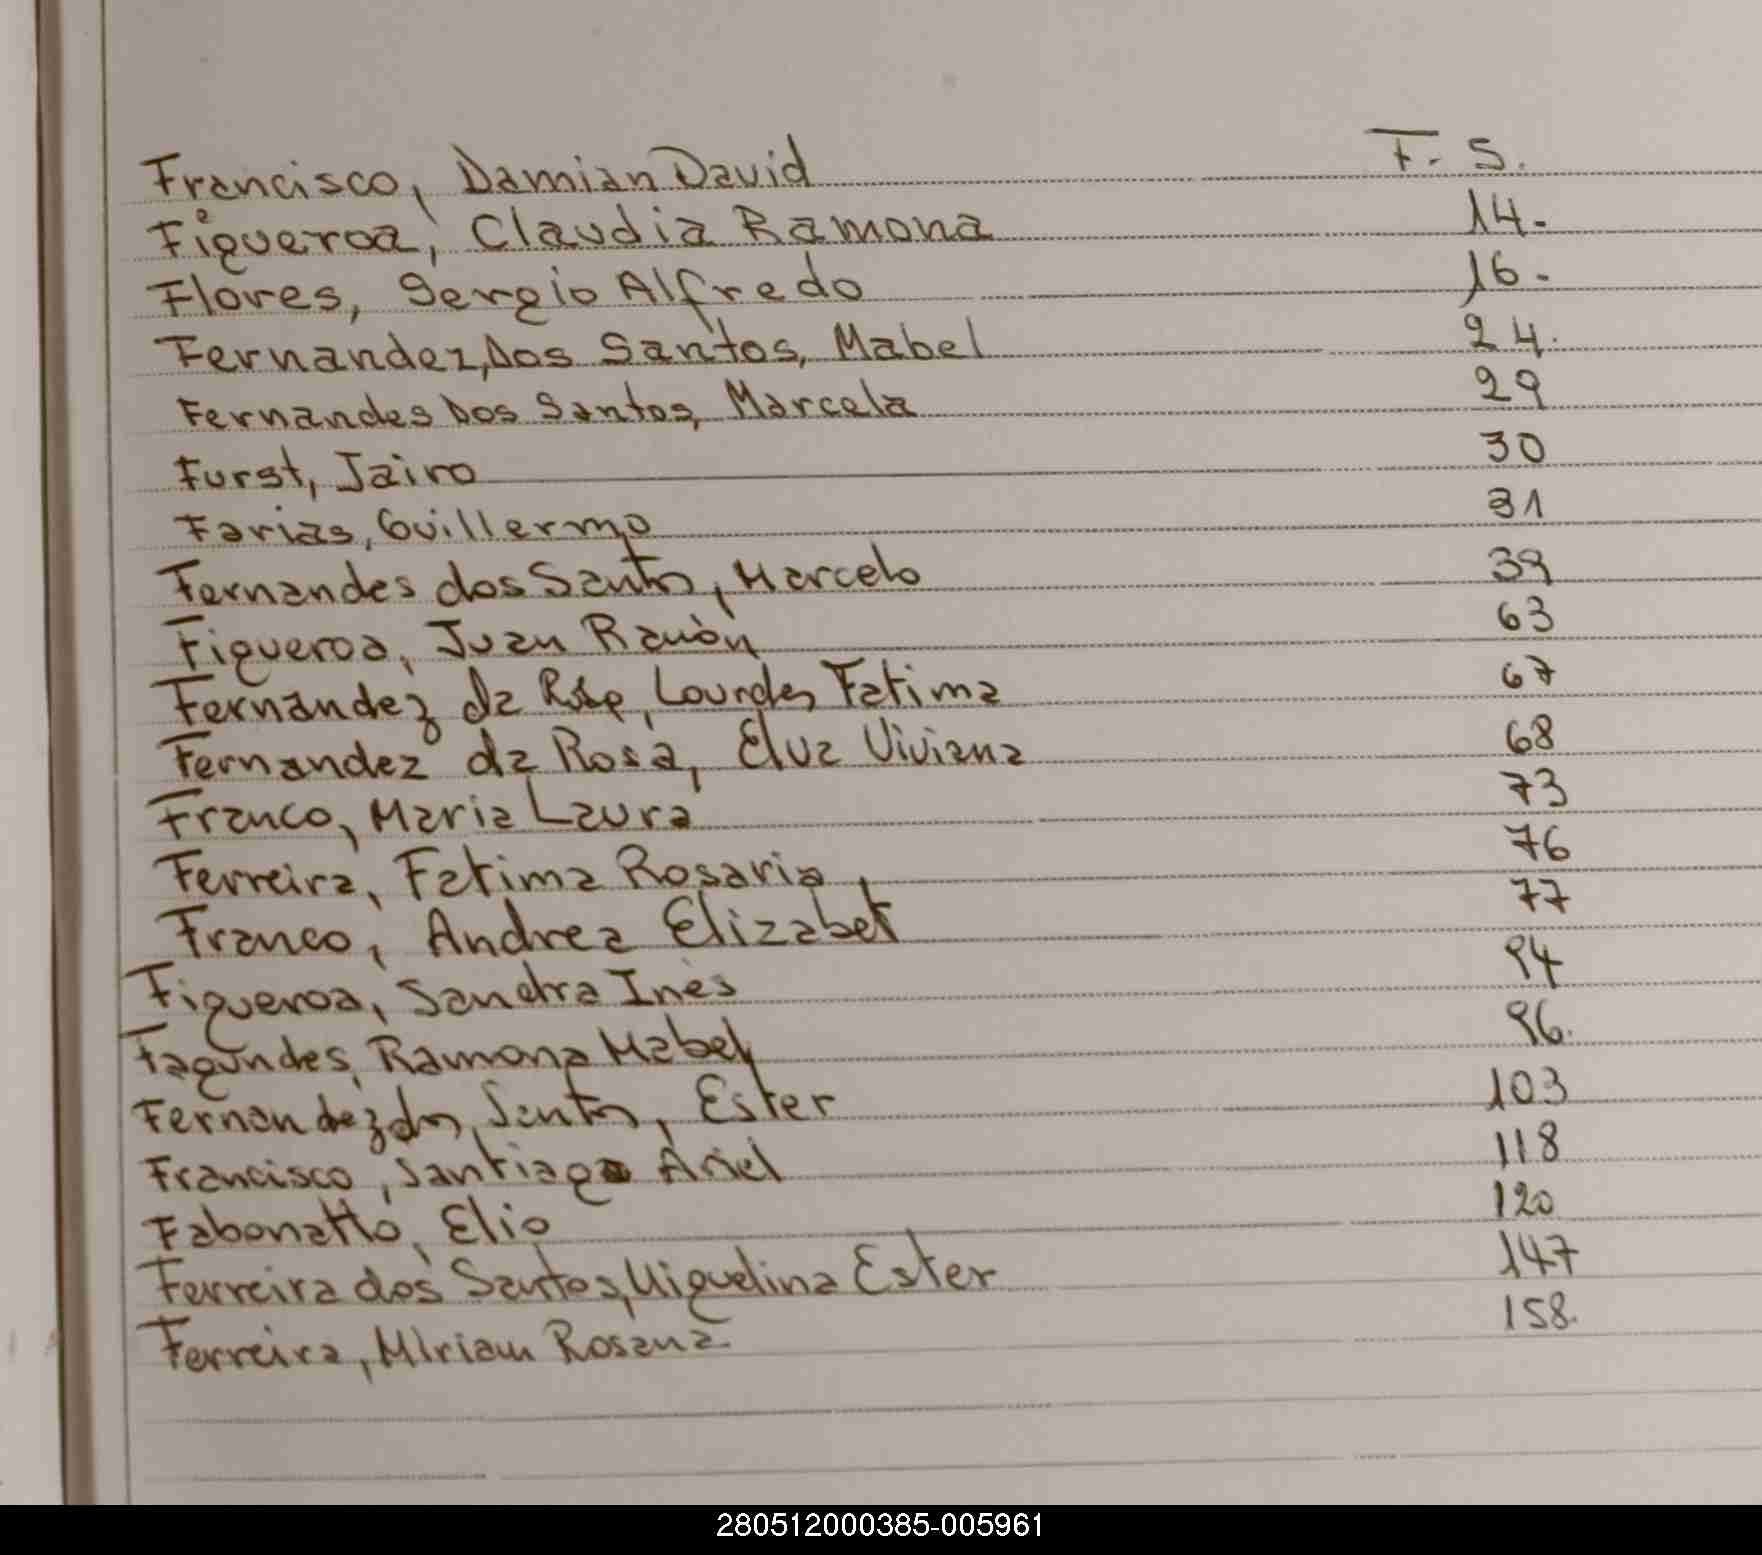 Francisco, Damian David F. S.
Figueroa, Claudia Ramona 14.
Flores, Sergio Alfredo 16.
Fernandez, Dos Santos, Mabel 24.
Fernandes Dos Santos, Marcela 29
Furst, Jairo 30
Farias, Guillermo 31
Fernandes dos Santos, Marcelo 39
Figueroa, Juan Ramòn 63
Fernandez da Rosa, Lourdes Fatima 67
Fernandez da Rosa, Elva Viviana 68
Franco, Maria Laura 73
Ferreira, Fatima Rosario 76
Franco, Andrea Elizabet 77
Figueroa, Sandra Inès 94
Fagundes, Ramona Mabel 96.
Fernandez dos Santos, Ester 103
Francisco, Santiago Ariel 118
Fabonatto, Elio 120
Ferreira dos Santos, Miguelina Ester 147
Ferreira, Miriam Rosana 158.
280512000385-005961